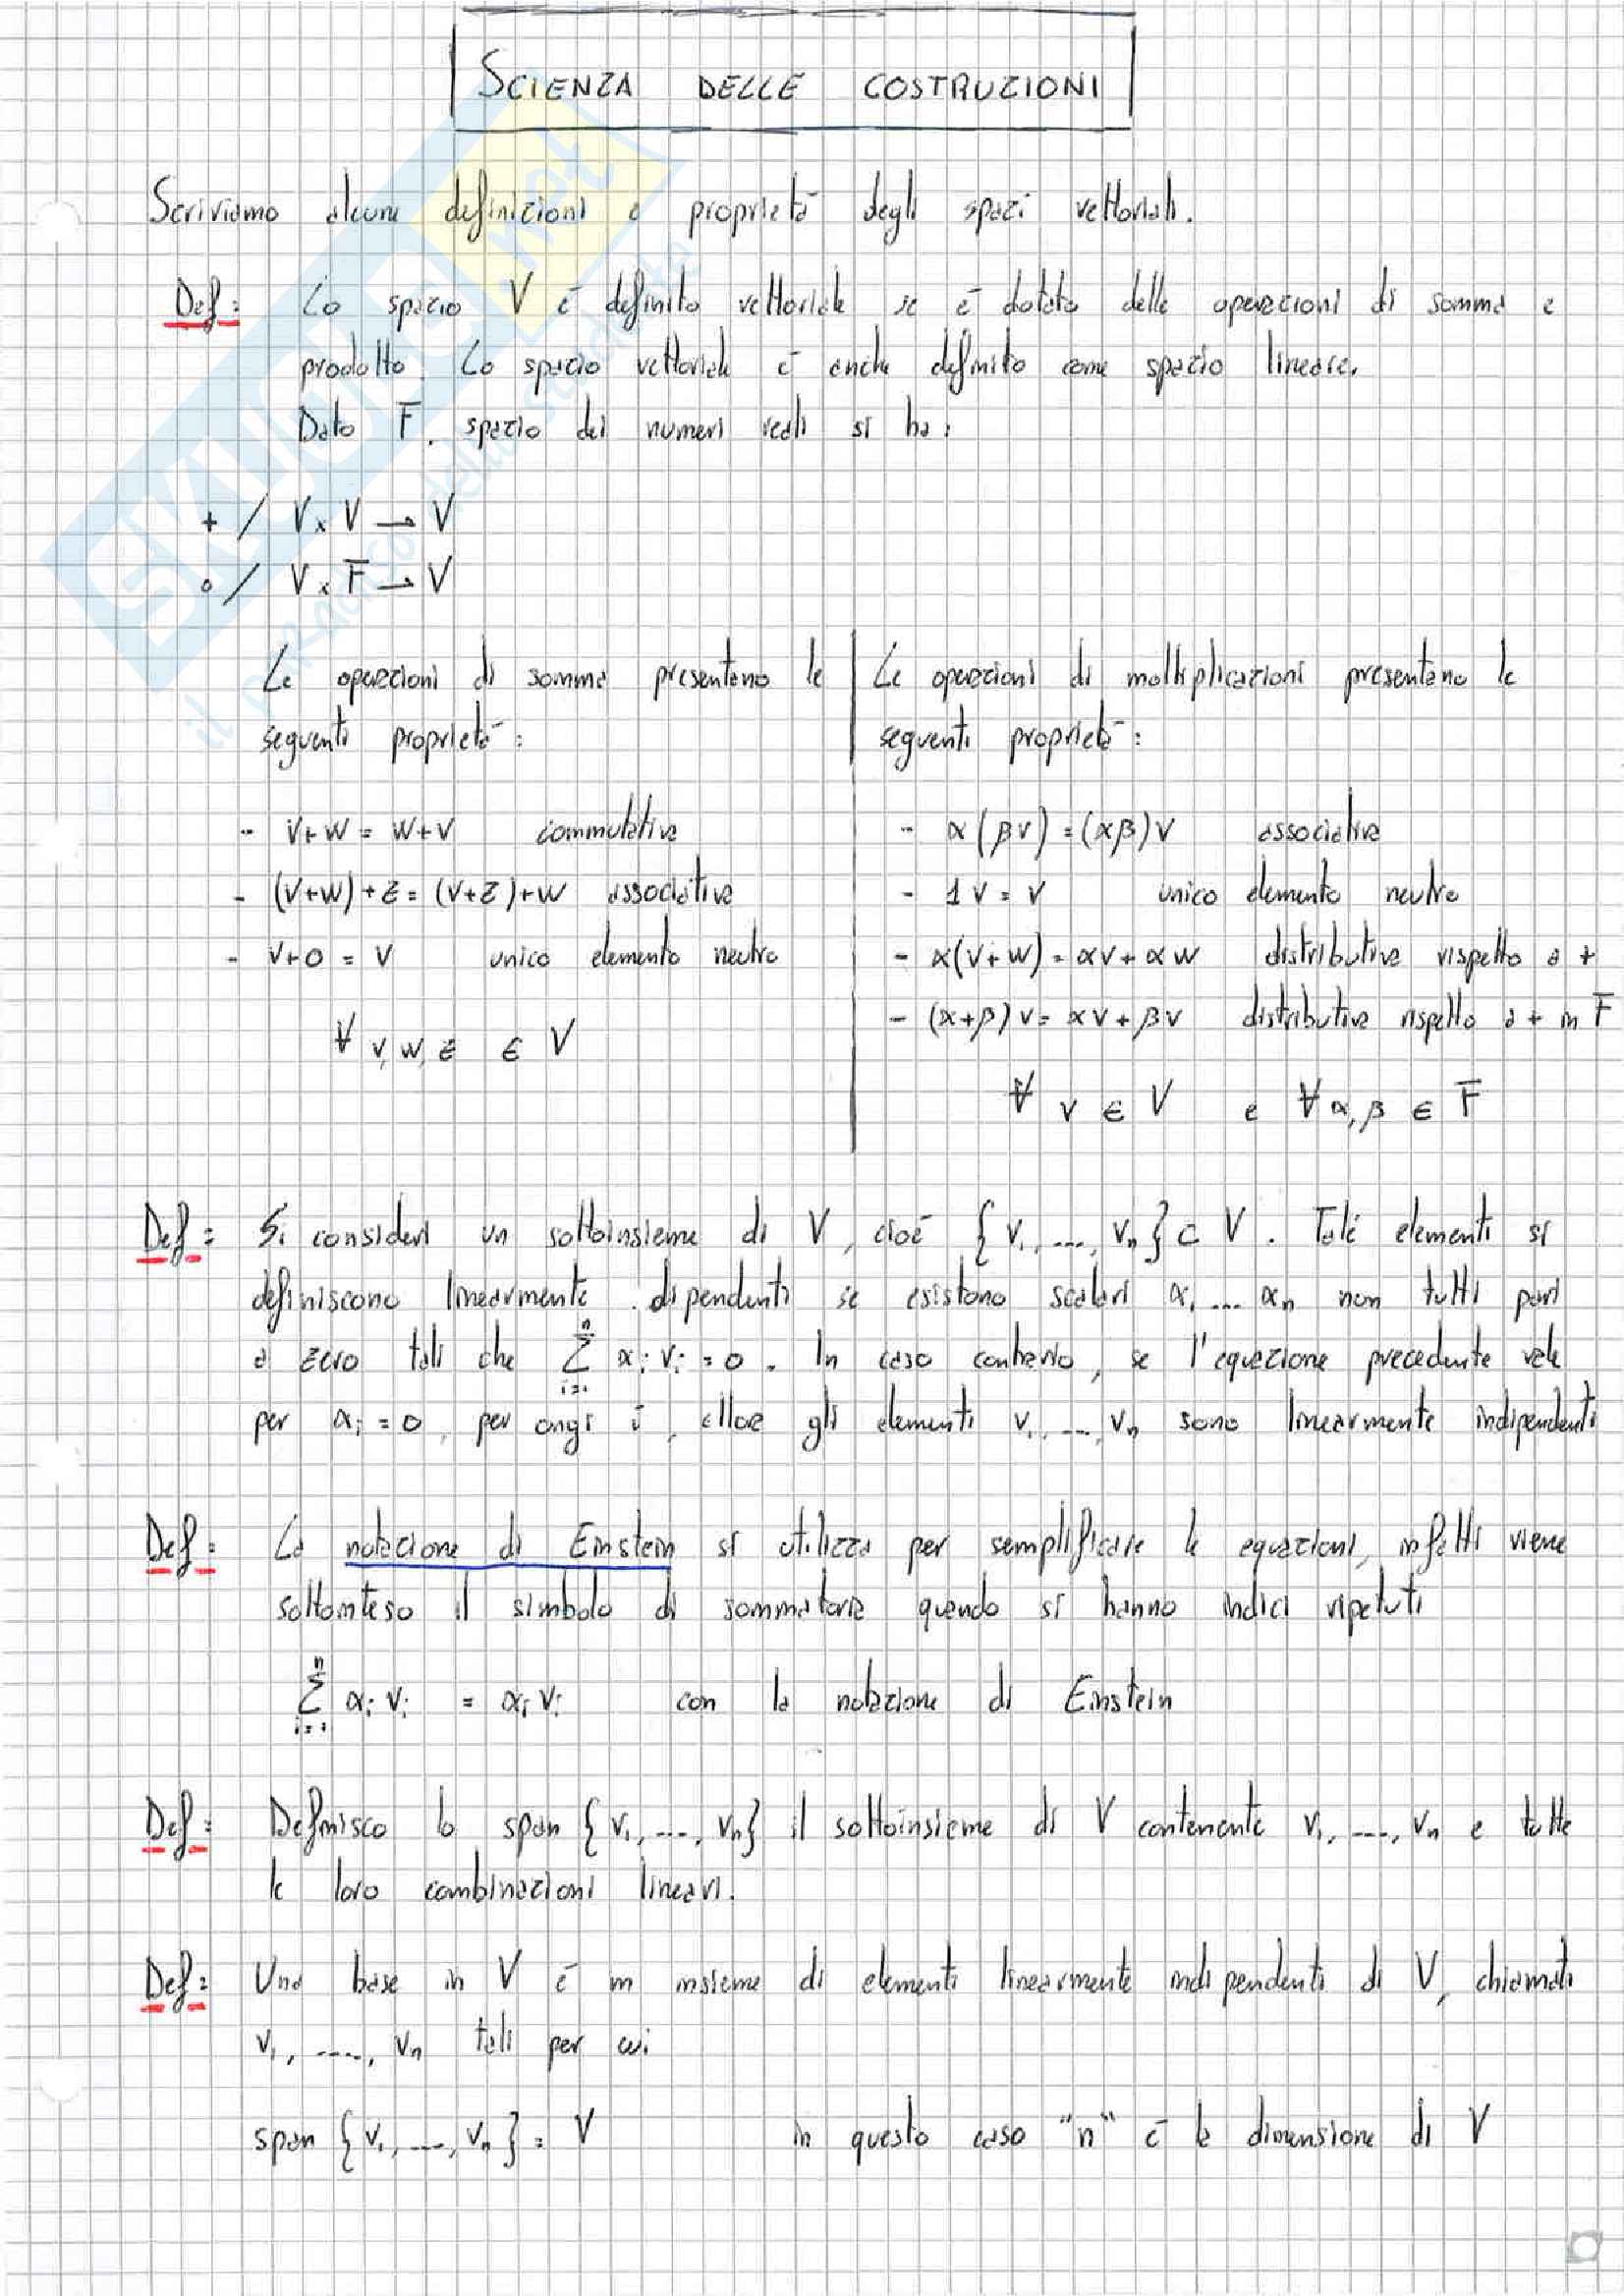 SCIENZA DELLE COSTRUZIONI
Scriviamo alcune definizioni e proprietà degli spazi vettoriali.
Def: Lo spazio V è definito vettoriale se è dotato delle operazioni di somma e
prodotto. Lo spazio vettoriale è anche definito come spazio lineare.
Dato F, spazio dei numeri reali si ha:
+ / V x V → V
∘ / V x F → V
Le operazioni di somma presentano le
seguenti proprietà:
- v+w = w+v commutativa
- (v+w)+z = (v+z)+w associativa
- v+0 = v unico elemento neutro
∀ v, w, z ∈ V
Le operazioni di moltiplicazioni presentano le
seguenti proprietà:
- α(βv) = (αβ)v associativa
- 1v = v unico elemento neutro
- α(v+w) = αv + αw distributiva rispetto a +
- (α+β)v = αv + βv distributiva rispetto a + in F
∀ v ∈ V e ∀ α, β ∈ F
Def: Si consideri un sottoinsieme di V, cioè {v₁, ..., vₙ} ⊂ V. Tale elementi si
definiscono linearmente dipendenti se esistono scalari α₁ ... αₙ non tutti pari
a zero tali che ∑ⁿᵢ₌₁ αᵢ vᵢ = 0. In caso contrario, se l'equazione precedente vale
per αᵢ = 0, per ongi i, allora gli elementi v₁, ..., vₙ sono linearmente indipendenti
Def: La notazione di Einstein si utilizza per semplificare le equazioni, infatti viene
sottointeso il simbolo di sommatoria quando si hanno indici ripetuti
∑ⁿᵢ₌₁ αᵢ vᵢ = αᵢ vᵢ con la notazione di Einstein
Def: Definisco lo span {v₁, ..., vₙ} il sottoinsieme di V contenente v₁, ..., vₙ e tutte
le loro combinazioni lineari.
Def: Una base in V è in insieme di elementi linearmente indipendenti di V, chiamati
v₁, ..., vₙ tali per cui
span {v₁, ..., vₙ} = V in questo caso "n" è la dimensione di V
SKUOLA.net
il paradiso dello studente